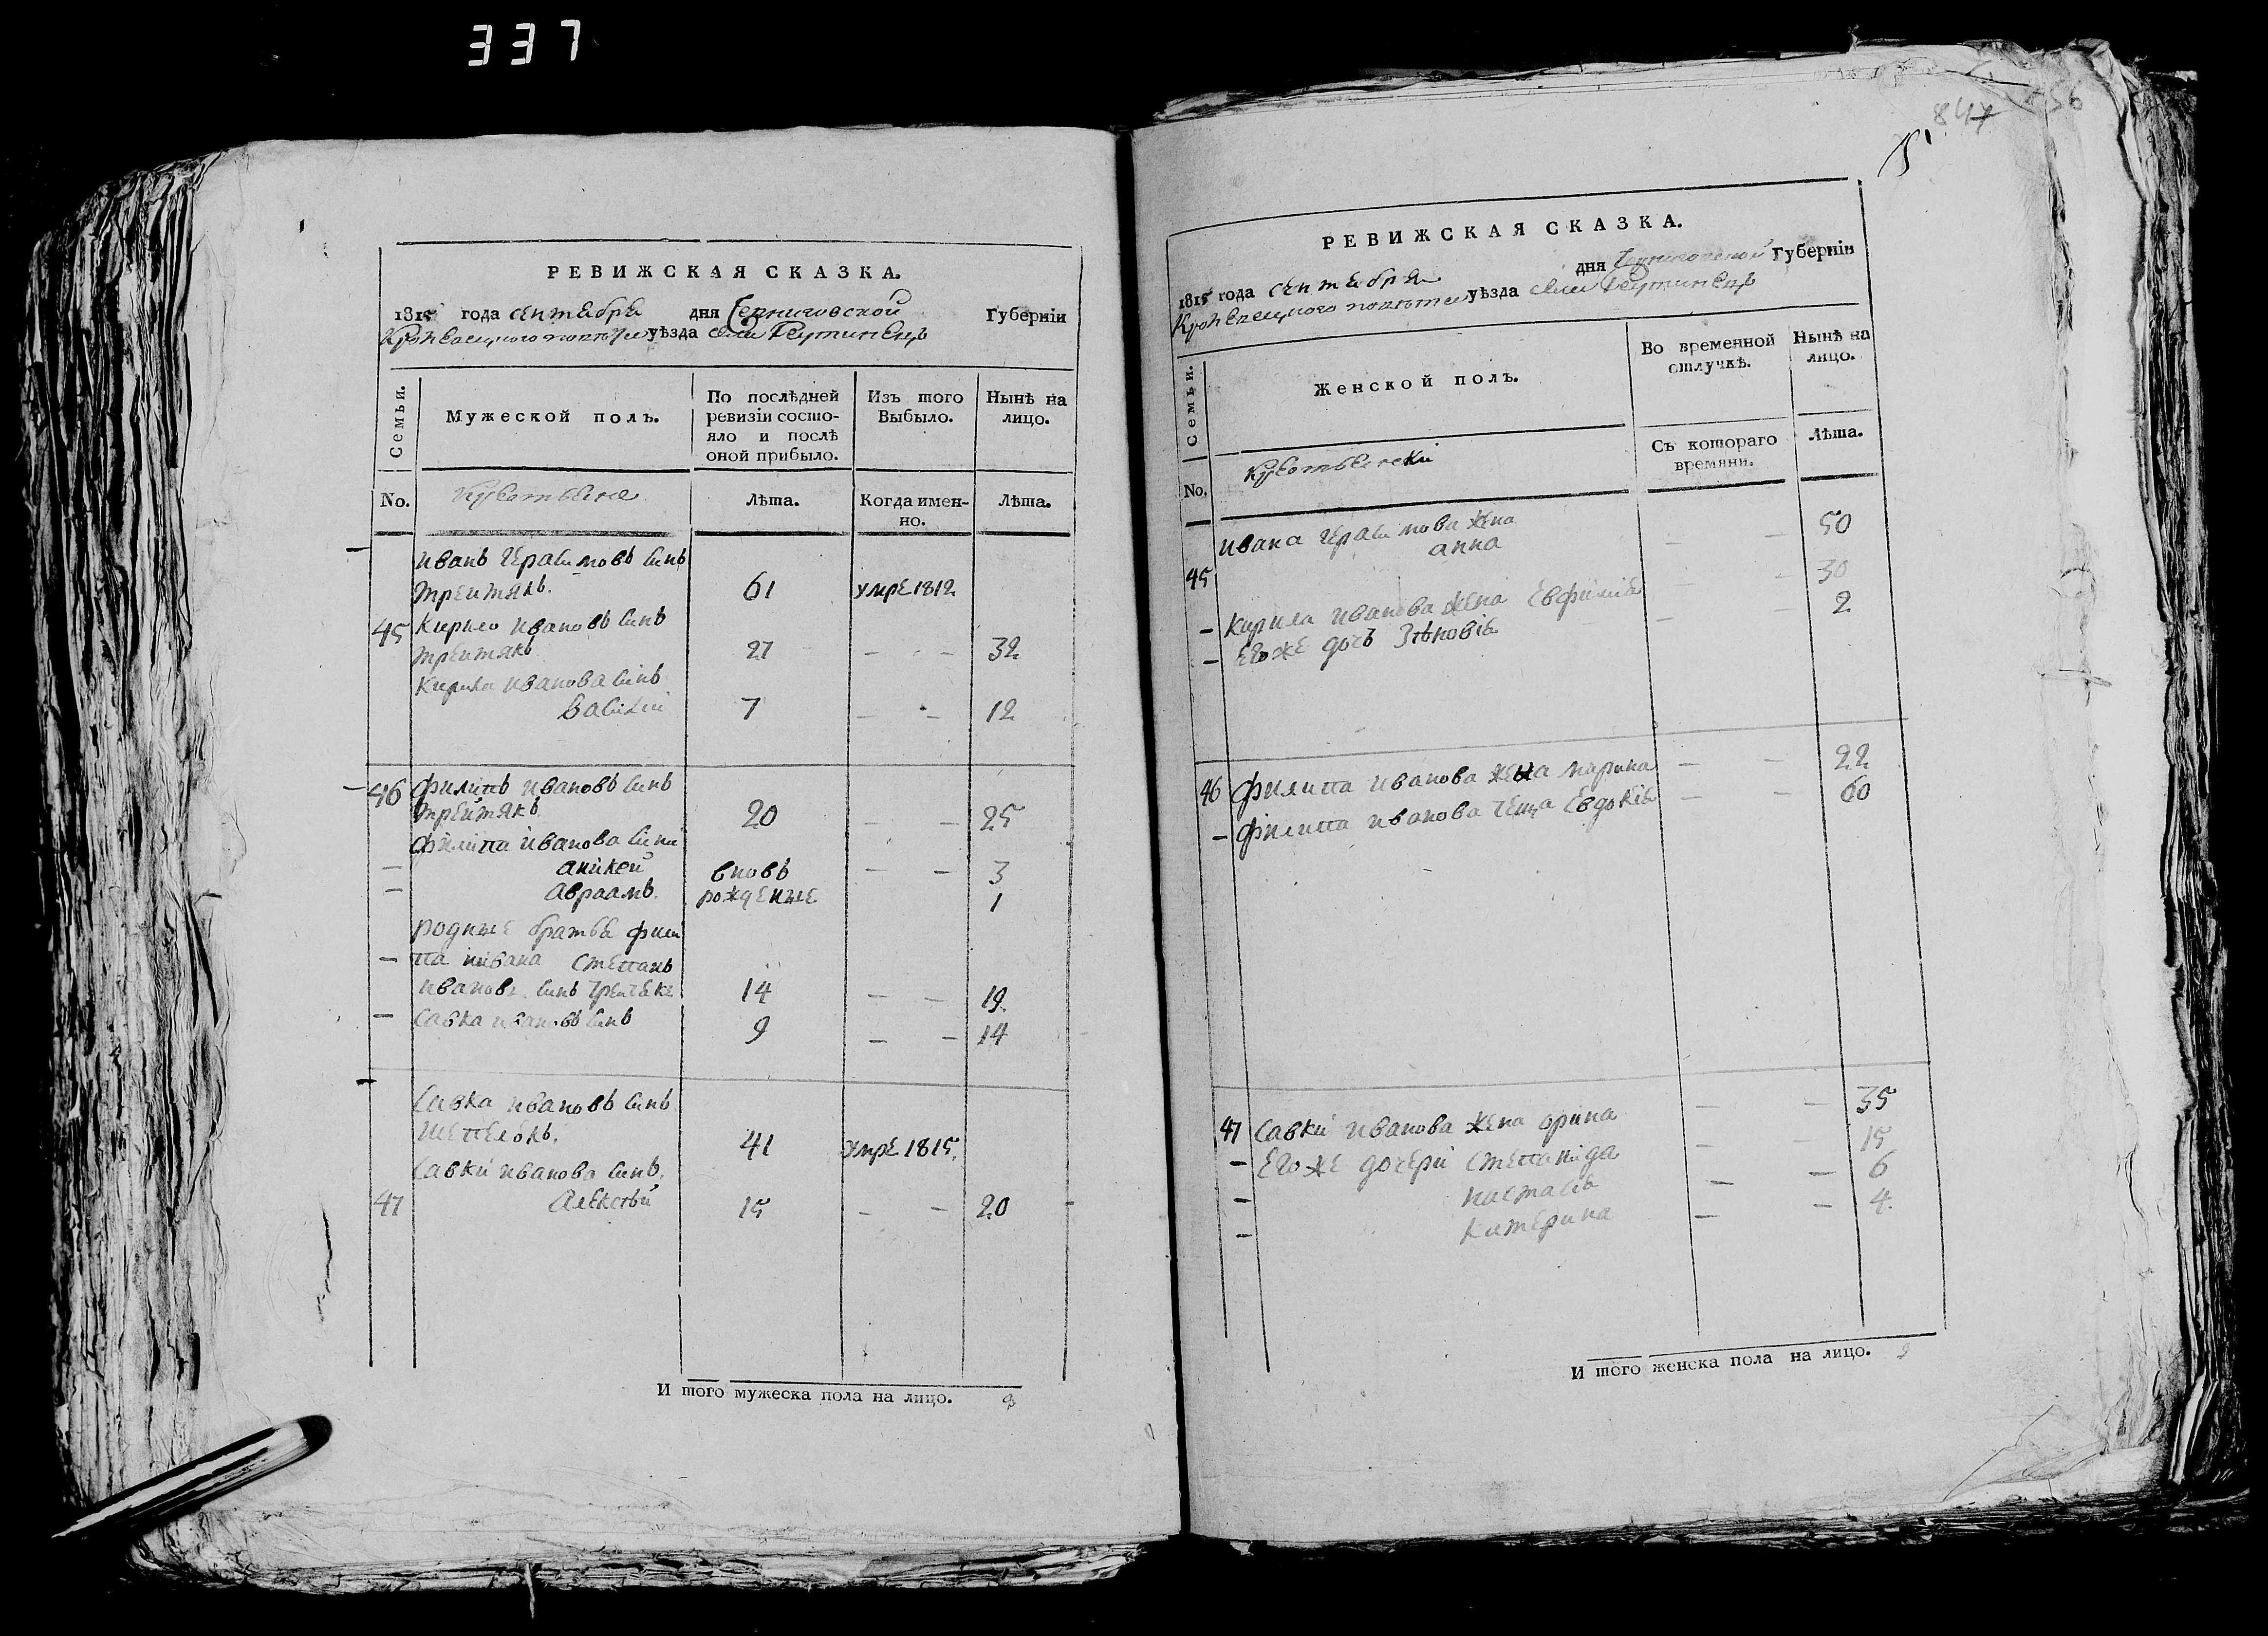 337
РЕВИЖСКАЯ СКАЗКА.
1815 года сентября дня Черниговской Губернiи
Кролевецкого повѣта уѣзда села Реутинецъ
Семьи.
Мужеской полъ.
По послѣдней ревизiи состояло и послѣ оной прибыло.
Изъ того Выбыло.
Нынѣ на лицо.
No.
Лѣта.
Когда именно.
Лѣта.
иванъ герасимовъ синъ
третякъ. 61 умре 1812
45 Кирило ивановъ синъ
третякъ 27 — — 32
Кирила иванова синъ
василiй 7 — — 12
46 филипъ ивановъ синъ
третякъ 20 — — 25
филипа иванова сини
аникей вновь — — 3
авраамъ рожденые 1
родные братья фили
па ивана степанъ
ивановъ синъ 14 — — 19.
савка ивановъ синъ 9 — — 14
савка ивановъ синъ
шепелокъ. 41 умре 1815.
савки иванова синъ
47 алексѣй 15 — — 20
И того мужеска пола на лицо. 8
847
РЕВИЖСКАЯ СКАЗКА.
1815 года сентября дня Черниговской Губернiи
Кролевецкого повѣта уѣзда села Реутинецъ
Семьи.
Женской полъ.
Во временной отлучкѣ.
Нынѣ на лицо.
No.
Съ котораго времяни.
Лѣта.
ивана герасимова жена
45 анна — — 50
— Кирила иванова жена Евфимiя — — 30
— Егоже дочъ Зѣновiя — — 2
46 филипа иванова жена марина — — 22
— филипа иванова теща Евдокiя — — 60
47 савки иванова жена орина — — 35
— Егоже дочери степанида — — 15
— настасiя — — 6
— катерина — — 4.
И того женска пола на лицо. 9